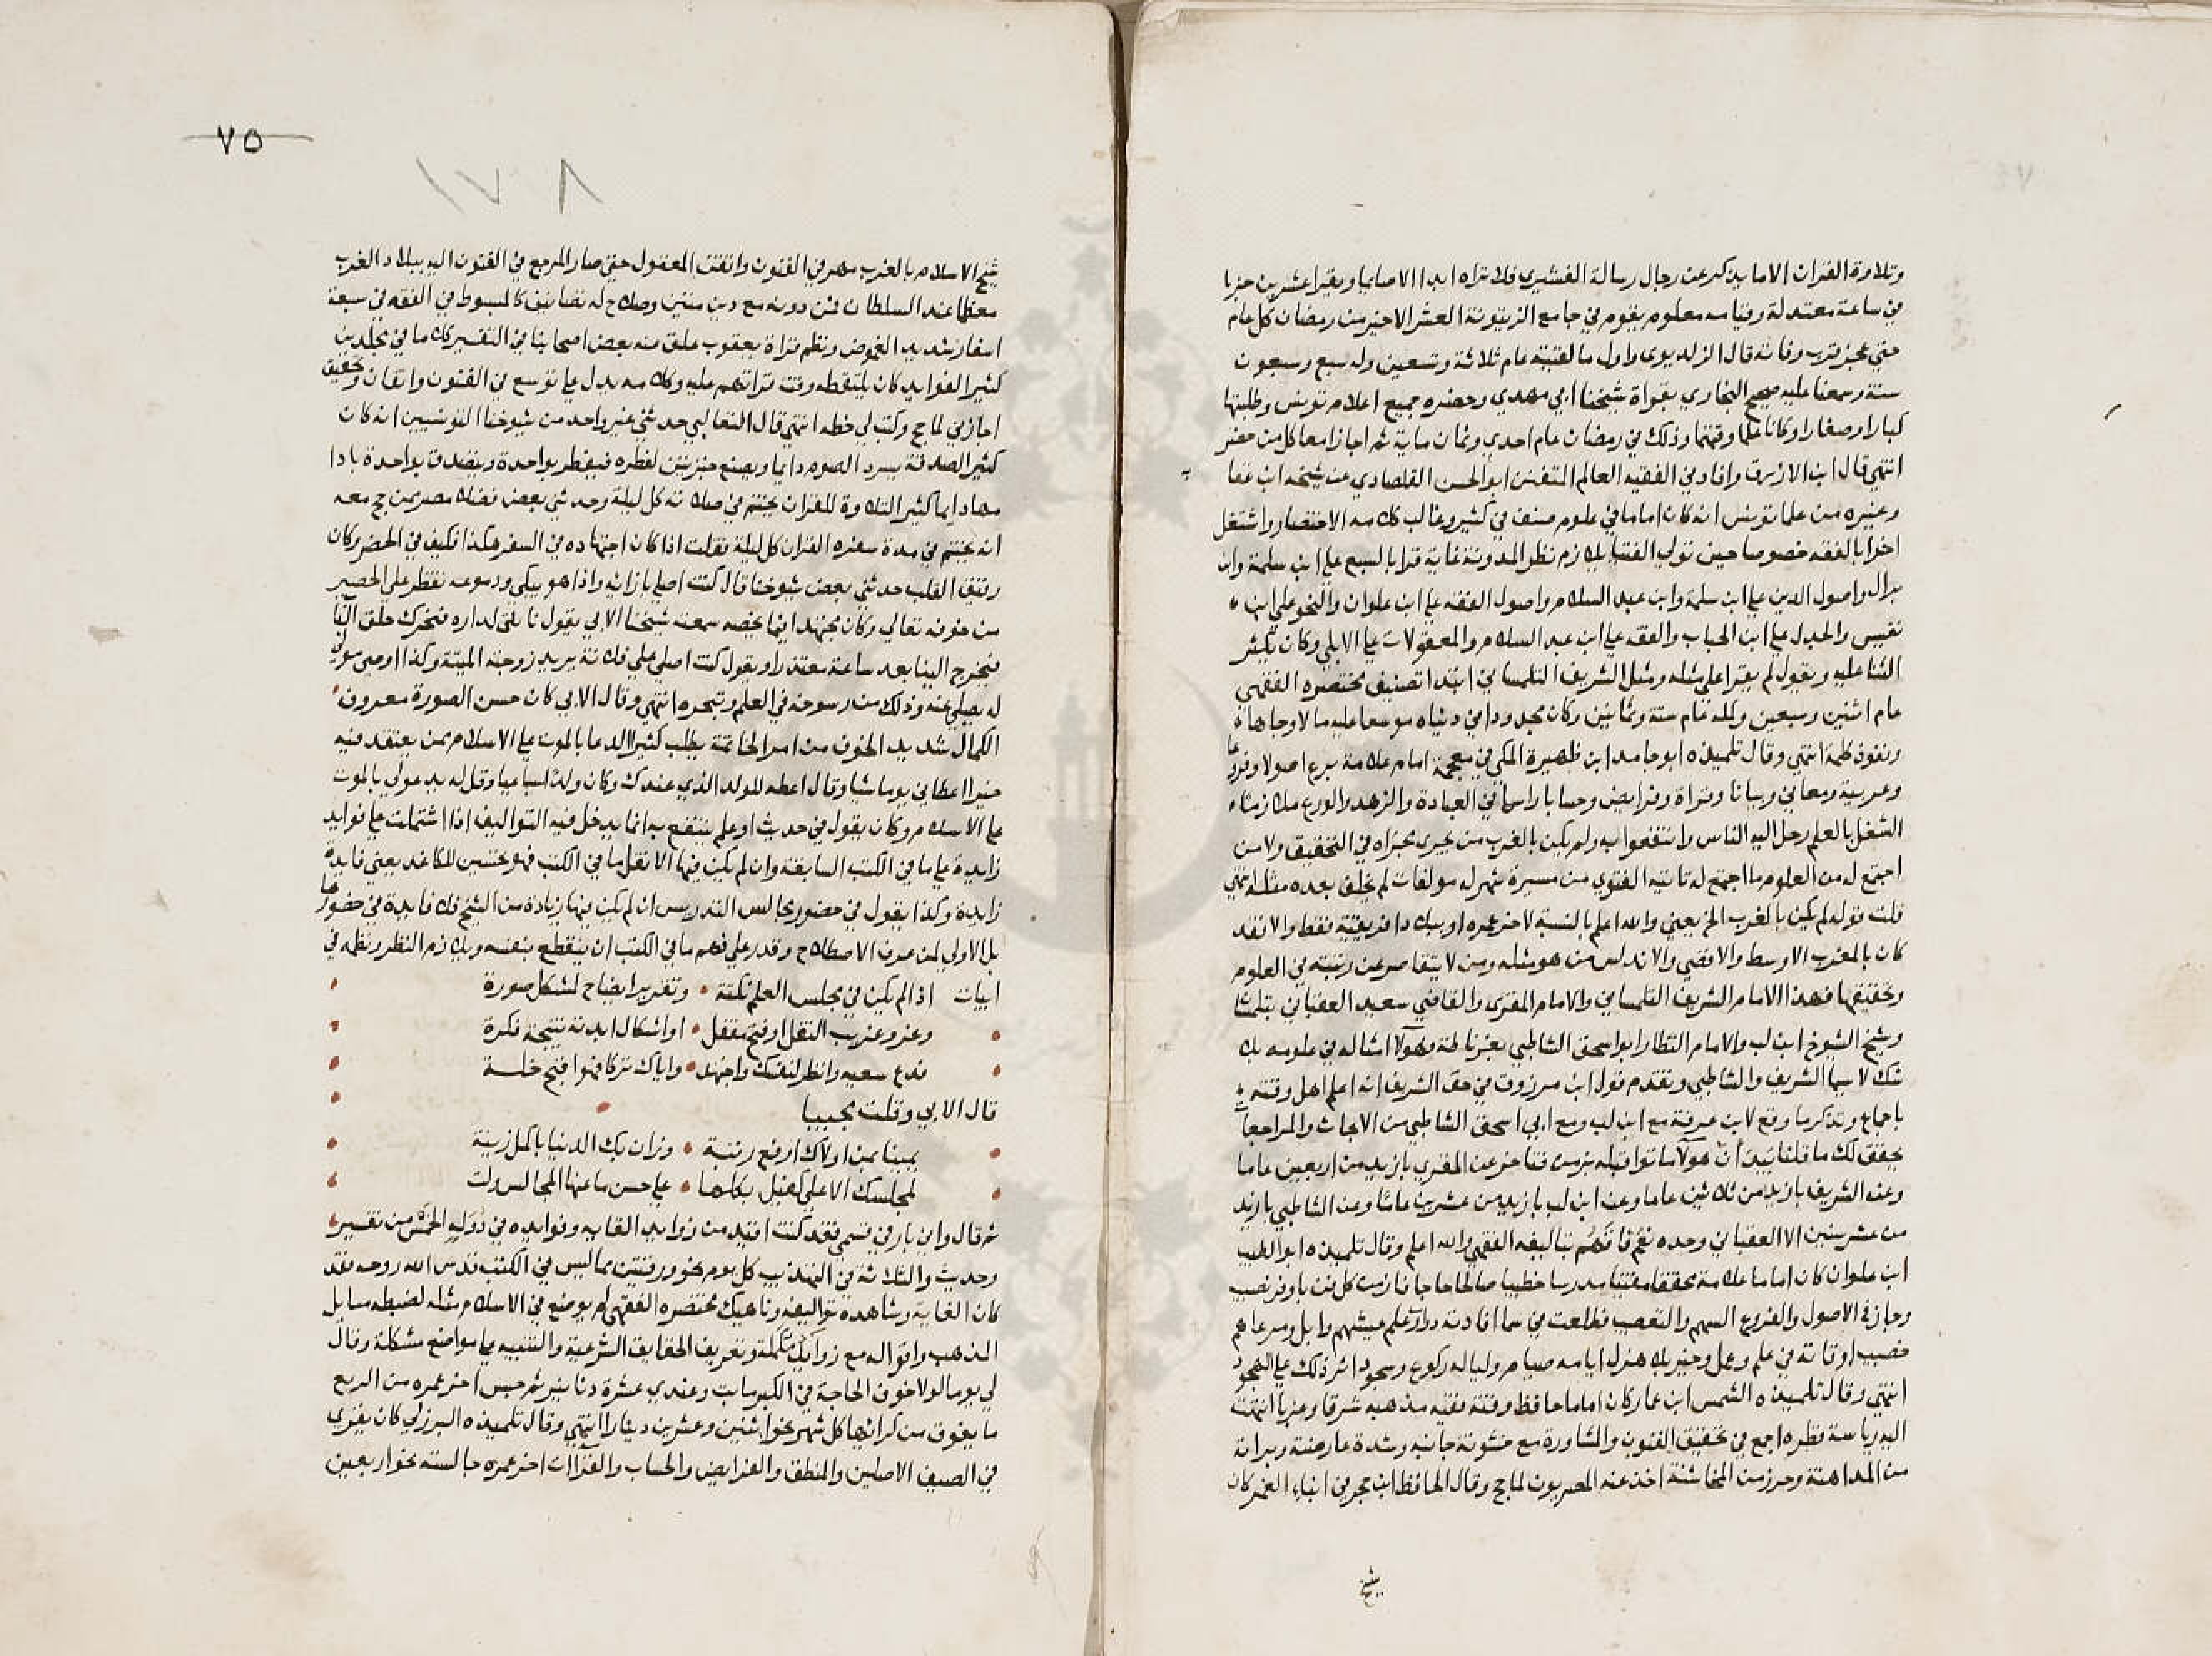 وتلاوة القران الا ما يذكر عن رجال رسالة القشيري فلا تراه ابدا الا صايما ويقرا عشرين حزبا
في ساعة معتدلة وقيامه معلوم يقوم في جامع الزيتونة العشر الاخير من رمضان كل عام
حتى عجز قرب وفاته قال الزلديوي واول ما لقيته عام ثلاثة وتسعين وله سبع وسبعون
سنة وسمعنا عليه صحيح البخاري بقراة شيخنا ابي مهدي وحضره جميع اعلام تونس وطلبتها
كبارا وصغارا وذلك في رمضان عام احدي وثمان ماية ثم اجازا معا كل من حضر
انتهي قال ابن الازرق وافادني الفقيه العالم المتفنن ابو الحسن القلصادي عن شيخه ابن عقا
وغيره من علما تونس انه كان اماما في علوم صنف في كثير وغالب كلامه الاختصار واشتغل
اخرا بالفقه خصوصا حين تولي الفتيا يلازم نظر المدونة غاية قرا بالسبع علي ابن سلمة وابن
برال واصول الدين علي ابن سلمة وابن عبد السلام واصول الفقه علي ابن علوان والنحو علي ابن
نفيس والجدل علي ابن الحباب والفقه علي ابن عبد السلام والمعقولات علي الابلي وكان يكثر
الثنا عليه ويقول لم يقرا علي مثله ومثل الشريف التلمساني ابتدا تصنيف مختصره الفقهي
عام اثنين وسبعين وكمله عام ستة وثمانين وكان مجدودا في دنياه موسعا عليه مالا وجاها
ونفوذ كلمة انتهي وقال تلميذه ابو حامد ابن ظهيرة المكي في معجمه امام علامة برع اصولا وفروعا
وعربية ومعاني وبيانا وقراة وفرايض وحسابا راسا في العبادة والزهد والورع ملازما
الشغل بالعلم رحل اليه الناس وانتفعوا به ولم يكن بالغرب من يجري مجراه في التحقيق ولا من
اجتمع له من العلوم ما اجتمع له تاتيه الفتوي من مسيرة شهر له مولفات لم يخلف بعده مثله انتهي
قلت قوله لم يكن بالغرب الخ يعني والله اعلم بالنسبة لاخر عمره او ببلاد افريقية فقط والا فقد
كان بالمغرب الاوسط والاقصي والاندلس من هو مثله ومن لا يتقاصر عن رتبته في العلوم
وتحقيقها فهذا الامام الشريف التلمساني والامام المقري والقاضي سعيد العقباني بتلمسا
وشيخ الشيوخ ابن لب والامام النظار ابو اسحق الشاطبي بغرناطة وهولا امثاله في علومه بلا
شك لا سيما الشريف والشاطبي وتقدم قول ابن مرزوق في حق الشريف انه اعلم اهل وقته
باجماع وتذكر ما وقع لابن عرفة مع ابن لب ومع ابي اسحق الشاطبي من الابحاث والمراجعا
يحقق لك ما قلنا تبين ان هولا ماتوا قبله بزمن فتاخر عن المقري بازيد من اربعين عاما
وعن الشريف بازيد من ثلاثين عاما وعن ابن لب بازيد من عشرين عاما وعن الشاطبي بازيد
من عشر سنين الا العقباني وحده نعم فاقهم بتاليفه الفقهي والله اعلم وقال تلميذه ابو الطيب
ابن علوان كان اماما علامة محققا مفتيا مدرسا خطيبا صالحا حاجا فاز من كل فن باوفر نصيب
وحاز في الاصول والفروع السهم والتعصيب
خصيب اوقاته في علم وعمل وخير بلا هزل ايامه صيام ولياليه ركوع وسجود اثر ذلك علي الهجود
انتهي وقال تلميذه الشمس ابن عمار كان اماما حافظ وقته فقيه مذهبه شرقا وغربا انتهت
اليه رياسة قطره اجمع في تحقيق الفنون والمشاورة مع خشونة جانبه وشدة عارضته وبراءة
من المداهنة وحرز من المخاشنة اخذ عنه المصريون لما حج وقال الحافظ ابن حجر في انباء الغمر كان
شيخ
٧٥
١٧٨
شيخ الاسلام بالغرب مهر في الفنون واتقن المعقول حتى صار المرجع في الفنون اليه ببلاد الغرب
معظما عند السلطان فمن دونه مع دين متين وصلاح له تصانيف كالمبسوط في الفقه في سبعة
اسفار شديد الغموض ونظم قراة يعقوب علق منه بعض اصحابنا في التفسير كلاما في مجلدين
كثير الفوايد كان يلتقطه وقت قراتهم عليه وكلامه يدل علي توسع في الفنون واتقان وتحقيق
اجاز لي لما حج وكتب لي خطه انتهي قال الثعالبي حدثني غير واحد من شيوخنا التونسيين انه كان
كثير الصدقة يسرد الصوم دايما ويصنع خبزتين لفطره فيفطر بواحدة ويتصدق بواحدة بادا
مها دايما كثير التلاوة للقران يختم في صلاته كل ليلة وحدثني بعض فضلاء مصر ممن حج معه
انه يختم في مدة سفره القران كل ليلة فقلت اذا كان اجتهاده في السفر هكذا فكيف في الحضر وكان
رقيق القلب حدثني بعض شيوخنا قال كنت اصلي بازائه واذا هو يبكي ودموعه تقطر علي الحصير
من خوفه تعالي وكان مجتهدا فيما يخصه سمعت شيخنا الابي يقول ناتي لداره فنحرك حلق الباب
فيخرج الينا بعد ساعة معتذرا ويقول كنت اصلي علي فلانة يريد زوجته الميتة وكذا اوصي مولي
له يصلي عنه وذلك من رسوخه في العلم وتبحره انتهي وقال الابي كان حسن الصورة معروف
الكمال شديد الخوف من امر الخاتمة يطلب كثيرا الدعا بالموت علي الاسلام ممن يعتقد فيه
خيرا اعطاني يوما شيا وقال اعطه للولد الذي عندك وكان ولدا سباعيا وقل له يدعو لي بالموت
علي الاسلام وكان يقول في حديث او علم ينتفع به انما يدخل فيه التواليف اذا اشتملت علي فوايد
زايدة علي ما في الكتب السابقة وان لم يكن فيها الا نقل ما في الكتب فهو تخسير للكاغد يعني فايدة
زايدة وكذا يقول في حضور مجالس التدريس ان لم يكن فيها زيادة من الشيخ فلا فايدة في حضورها
بل الاولي لمن عرف الاصطلاح وقدر علي فهم ما في الكتب ان ينقطع بنفسه ويلازم النظر ونظمه في
ابيات اذا لم يكن في مجلس العلم نكتة • وتقرير ايضاح لمشكل صورة
وعزو غريب النقل او فتح مقفل • او اشكال ابدته نتيجة فكرة
فدع سعيه وانظر لنفسك واجتهد • واياك تركا فهو اقبح خلة
قال الابي وقلت مجيبا
يمينا بمن اولاك ارفع رتبة • وزان بك الدنيا باكمل زينة
لمجلسك الاعلي كفيل بكلها • علي حسن ما عنها المجالس ولت
ثم قال وابن بار في قسمي فقد كنت اقيد من زوايد القايه وفوايده في دوله الخمس من تفسير
وحديث والثلاثة في التهذيب كل يوم نحو ورقتين مما ليس في الكتب قدس الله روحه فقد
كان الغاية وشاهده تواليفه وناهيك مختصره الفقهي لم يوضع في الاسلام مثله لضبطه مسايل
المذهب واقواله مع زوايد مكملة وتعريف الحقايق الشرعية والتنبيه علي مواضع مشكلة وقال
لي يوما لولا خوف الحاجة في الكبر ما بت وعندي عشرة دنانير ثم حبس اخر عمره من الربع
ما يفوق من كرائها كل شهر نحوا ثنين وعشرين دينارا انتهي وقال تلميذه البرزلي كان يقري
في الصيف الاصلين والمنطق والفرايض والحساب والقراات اخر عمره جالسته نحوا ربعين